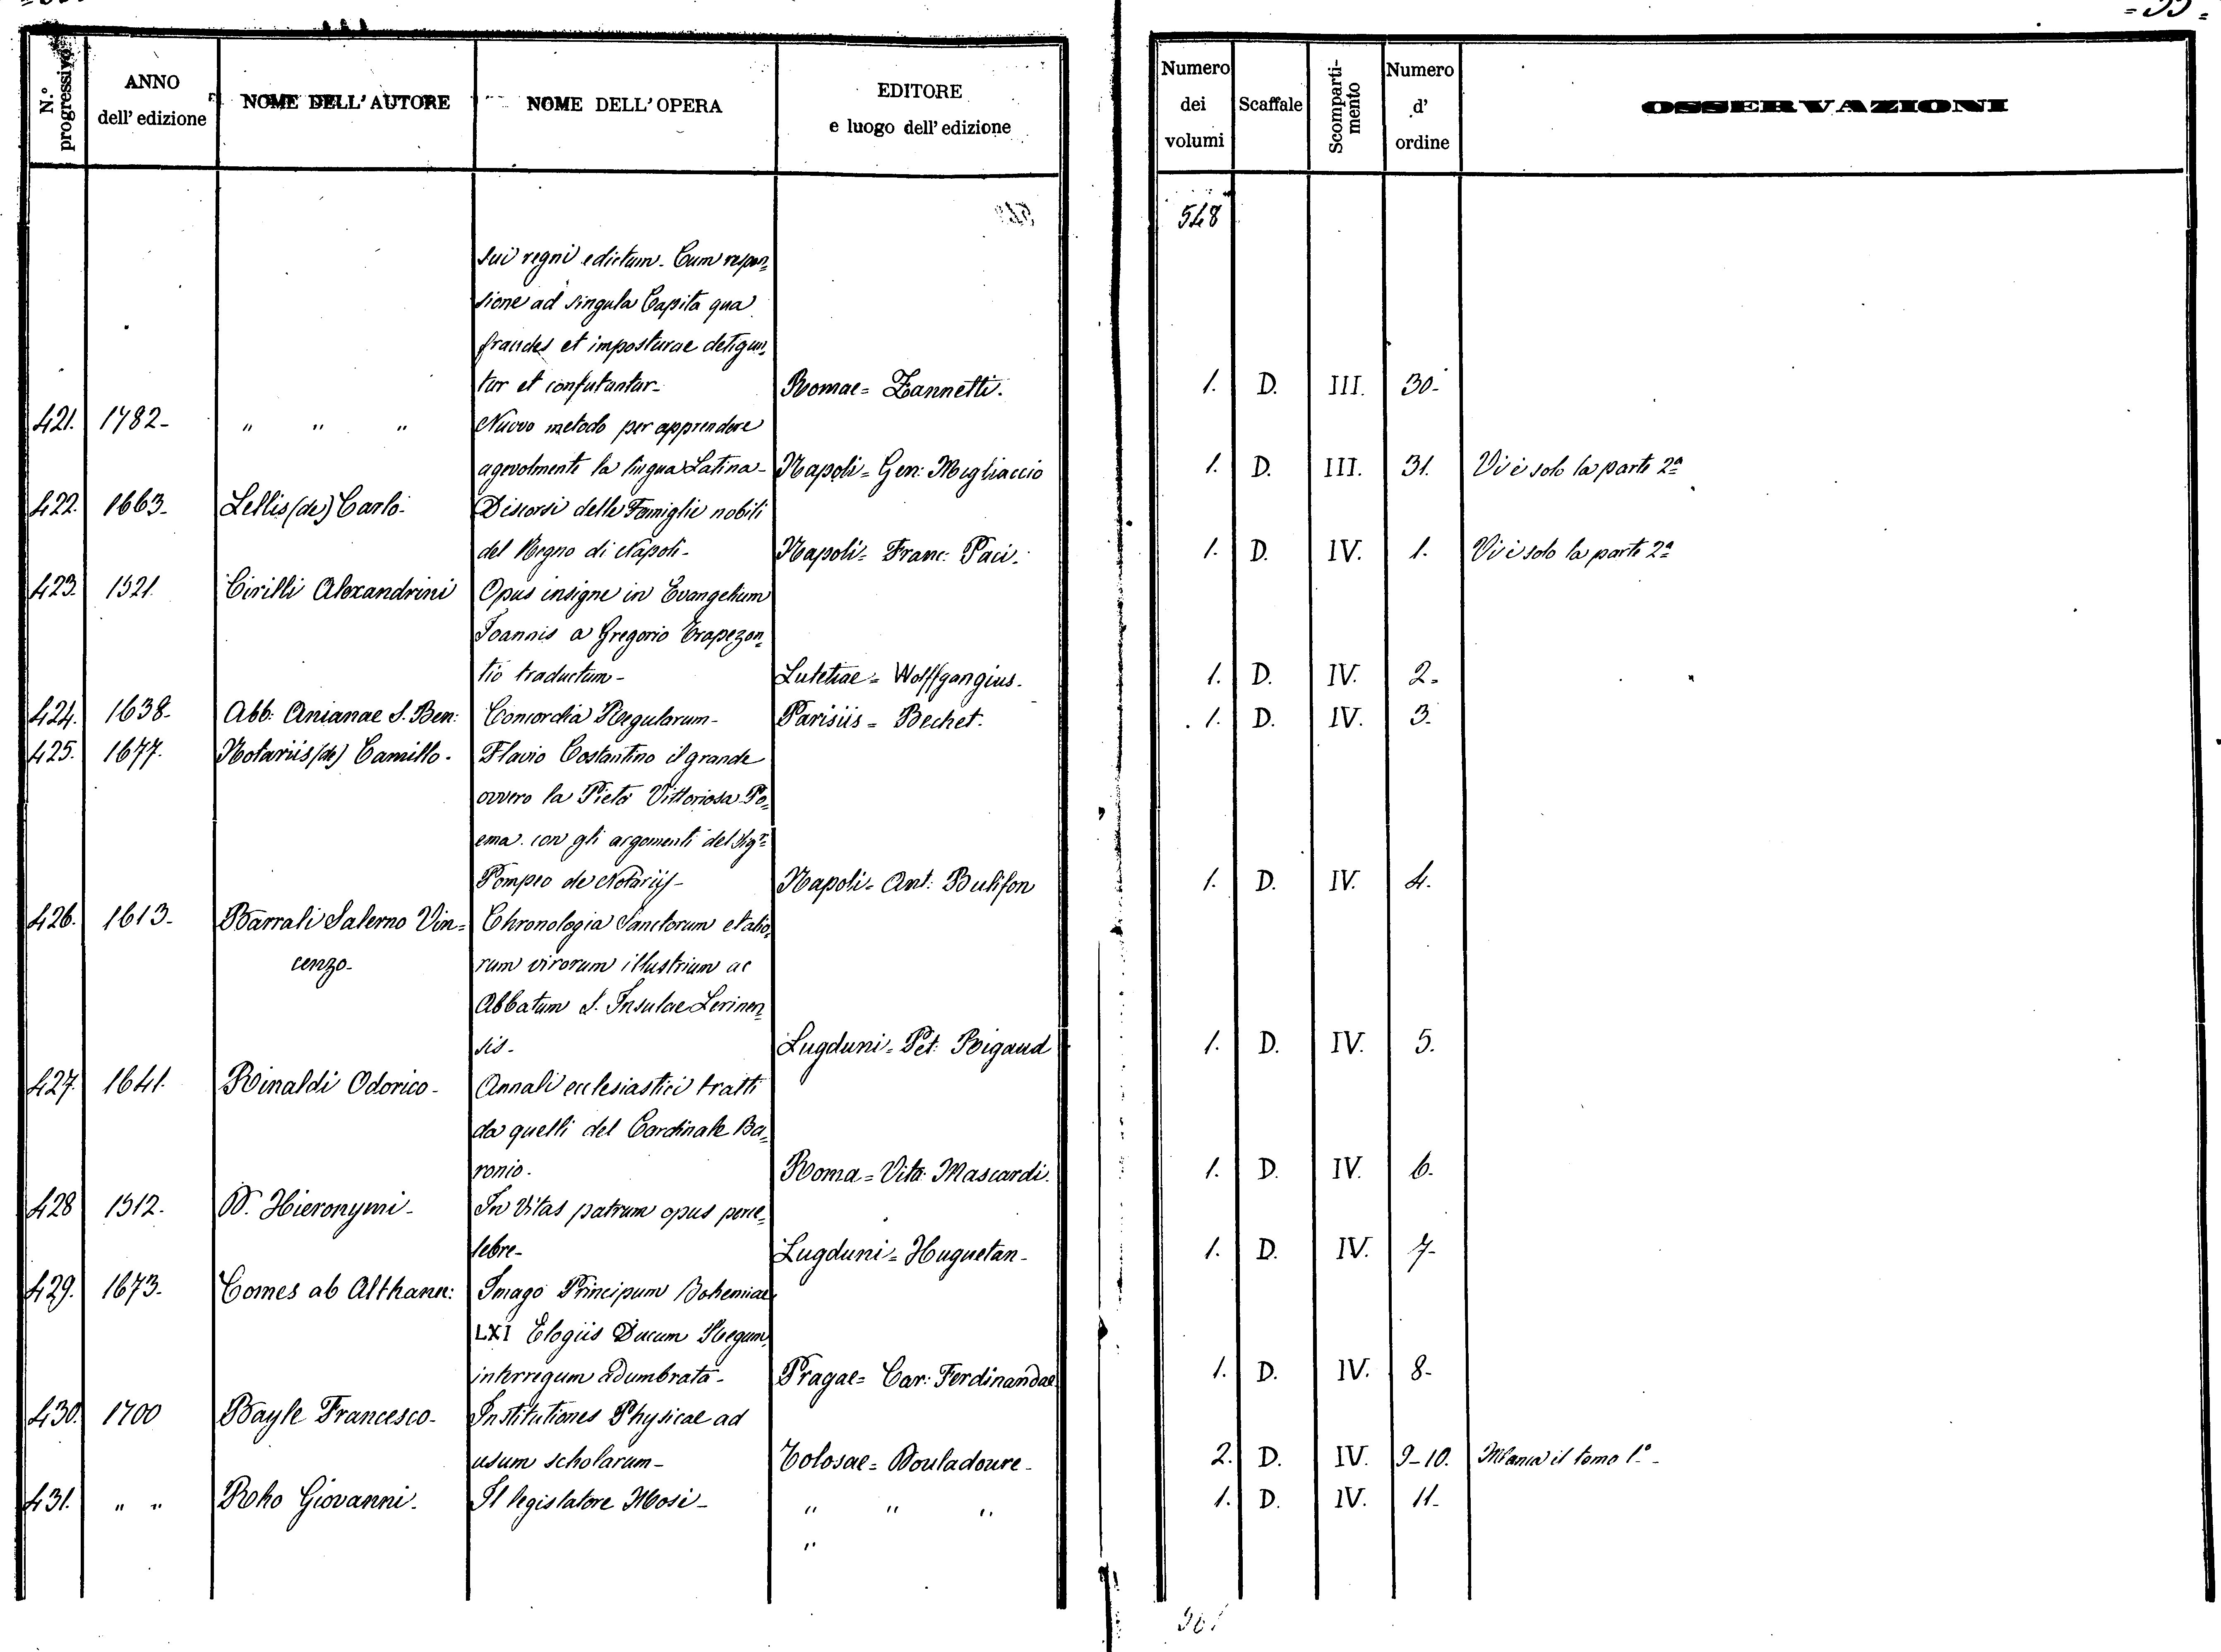 = 55 =
N.° progressivo | ANNO dell' edizione | NOME DELL' AUTORE | NOME DELL' OPERA | EDITORE e luogo dell' edizione | Numero dei volumi | Scaffale | Scomparti-mento | Numero d' ordine | OSSERVAZIONI
548
sui regni edictum. Cum respon=
sione ad singula Capita qua
fraudes et imposturae detegun=
tur et confutantur- | Romae= Zannetti. | 1. | D. | III. | 30-
421. | 1782- | " " " | Nuovo metodo per apprendere
agevolmente la lingua Latina- | Napoli= Gen: Migliaccio | 1. | D. | III. | 31. | Vi è solo la parte 2ª
422. | 1663- | Lellis (de) Carlo- | Discorsi delle Famiglie nobili
del Regno di Napoli- | Napoli= Franc: Paci. | 1. | D. | IV. | 1. | Vi è solo la parte 2ª
423. | 1521. | Cirilli Alexandrini | Opus insigne in Evangelium
Joannis a Gregorio Trapezon=
tio traductum- | Lutetiae= Wolffgangius. | 1. | D. | IV. | 2-
424. | 1638- | Abb: Anianae S. Ben: | Concordia Regularum- | Parisiis= Bechet. | 1. | D. | IV. | 3.
425. | 1677. | Notariis (de) Camillo. | Flavio Costantino il grande
ovvero la Pietà Vittoriosa Po=
ema con gli argomenti del Sigr
Pompeo de Notariis- | Napoli= Ant: Bulifon | 1. | D. | IV. | 4.
426. | 1613- | Barrali Salerno Vin= | Chronologia Sanctorum et alio=
cenzo- | rum virorum illustrium ac
Abbatum S. Insulae Lerinen=
sis- | Lugduni= Pet: Rigaud | 1. | D. | IV. | 5.
427. | 1641. | Rinaldi Odorico- | Annali ecclesiastici tratti
da quelli del Cardinale Ba=
ronio. | Roma= Vita: Mascardi. | 1. | D. | IV. | 6-
428 | 1512. | D. Hieronymi- | In Vitas patrum opus perce=
lebre- | Lugduni= Huguetan- | 1. | D. | IV. | 7-
429. | 1673- | Comes ab Althann: | Imago Principum Bohemiae
LXI Elogiis Ducum Regum
interregum adumbrata- | Pragae= Car: Ferdinandae | 1. | D. | IV. | 8-
430. | 1700 | Bayle Francesco- | Institutiones Physicae ad
usum scholarum- | Tolosae= Douladoure- | 2. | D. | IV. | 9-10. | Manca il tomo 1.°-
431. | " " | Roho Giovanni. | Il legislatore Mosè- | " " " | 1. | D. | IV. | 11-
"